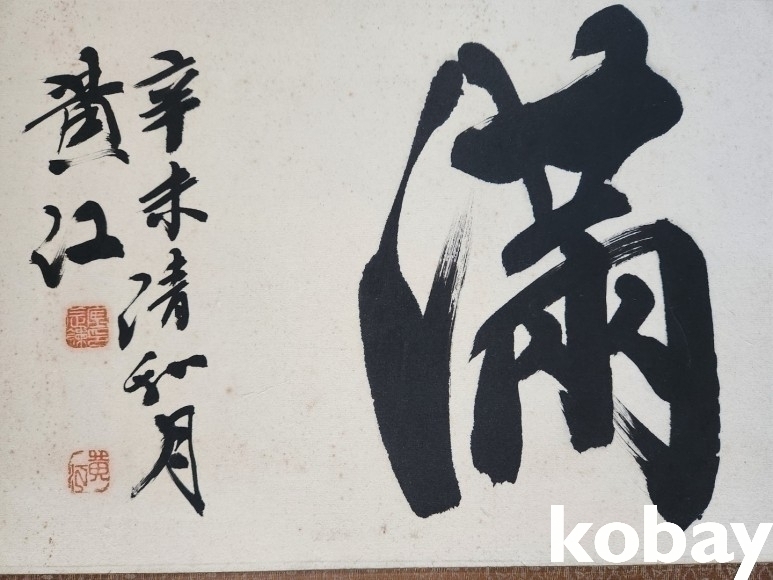 滿
辛未清和月
黃江
黃江
kobay